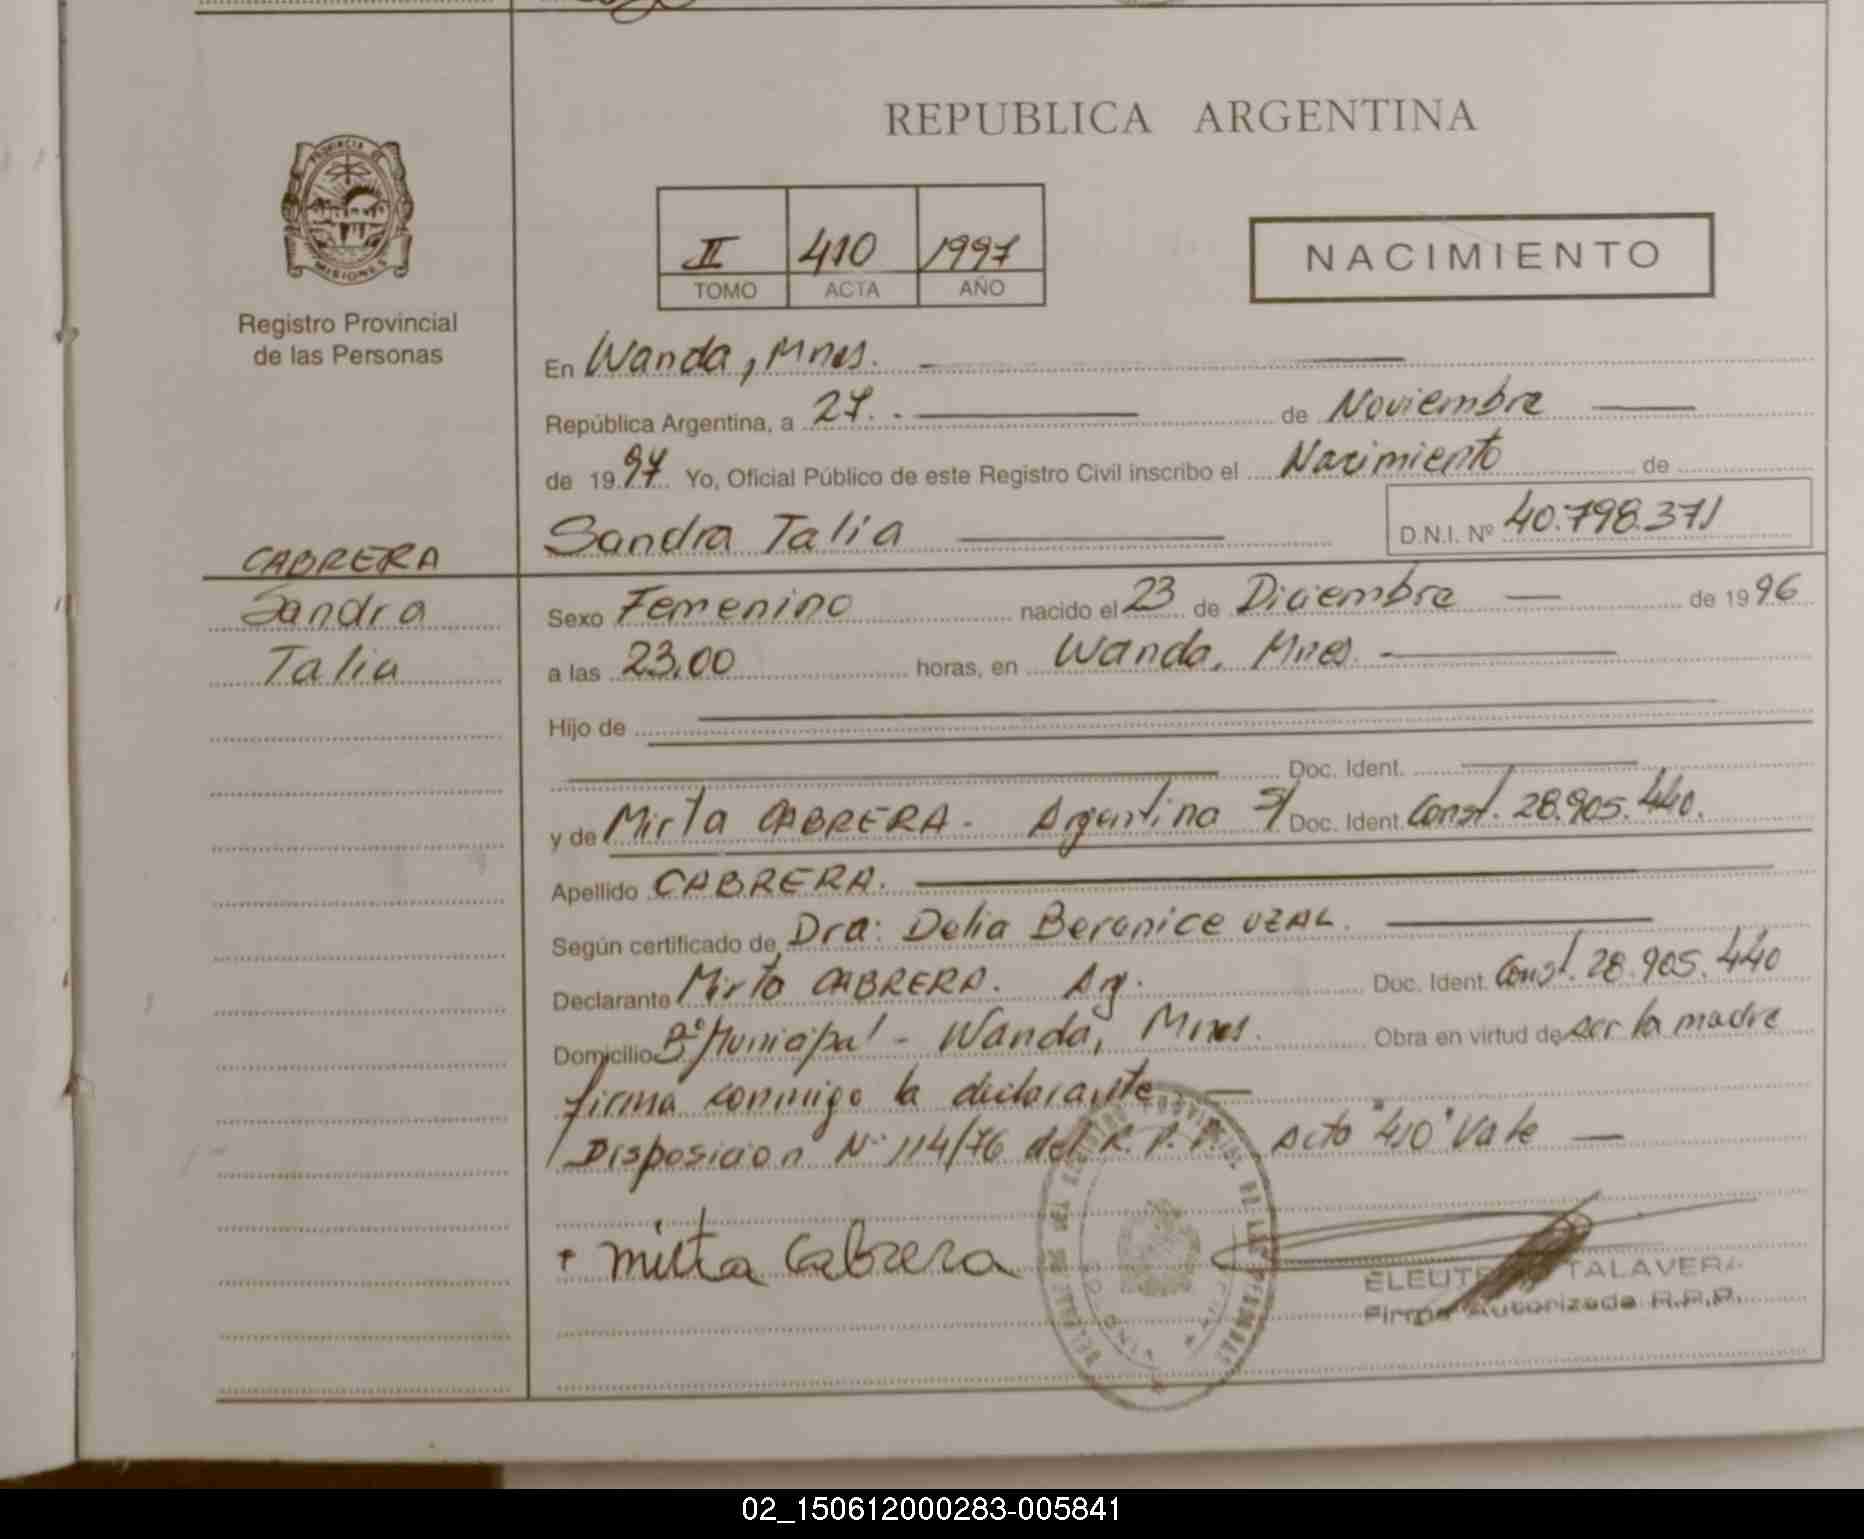 REPUBLICA ARGENTINA
PROVINCIA DE
MISIONES
Registro Provincial
de las Personas
II 410 1997
TOMO ACTA AÑO
NACIMIENTO
En Wanda, Mnes.
República Argentina, a 27. de Noviembre
de 1997 Yo, Oficial Público de este Registro Civil inscribo el Nacimiento de
Sandra Talia D.N.I. Nº 40.798.371
CABRERA
Sandra
Talia
Sexo Femenino nacido el 23 de Diciembre de 1996
a las 23,00 horas, en Wanda, Mnes.
Hijo de
Doc. Ident.
y de Mirta CABRERA - Argentina S/ Doc. Ident. Const. 28.905.440.
Apellido CABRERA.
Según certificado de Dra: Delia Beronice UZAL.
Declarante Mirta CABRERA. Arg. Doc. Ident. Const. 28.905.440
Domicilio Bº Municipal - Wanda, Mnes. Obra en virtud de ser la madre
firma conmigo la declarante
Disposicion Nº 114/76 del R. P. P. Acta "410" Vale
mirta Cabrera
TALAVERA
Firma Autorizada R.P.P.
02_150612000283-005841